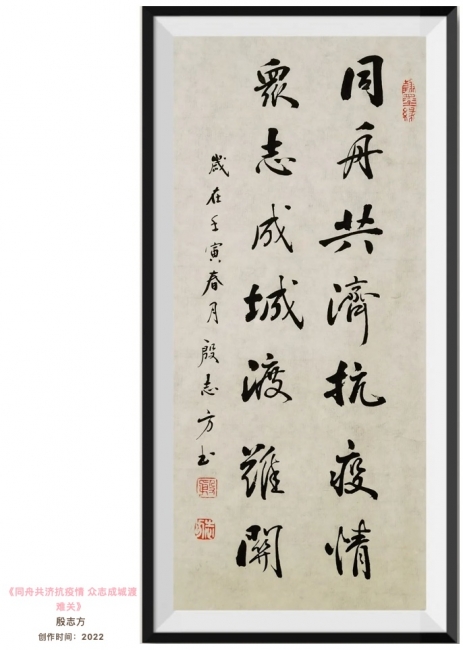 同舟共濟抗疫情
眾志成城渡難關
歲在壬寅春月殷志方书
《同舟共济抗疫情 众志成城渡
难关》
殷志方
创作时间：2022